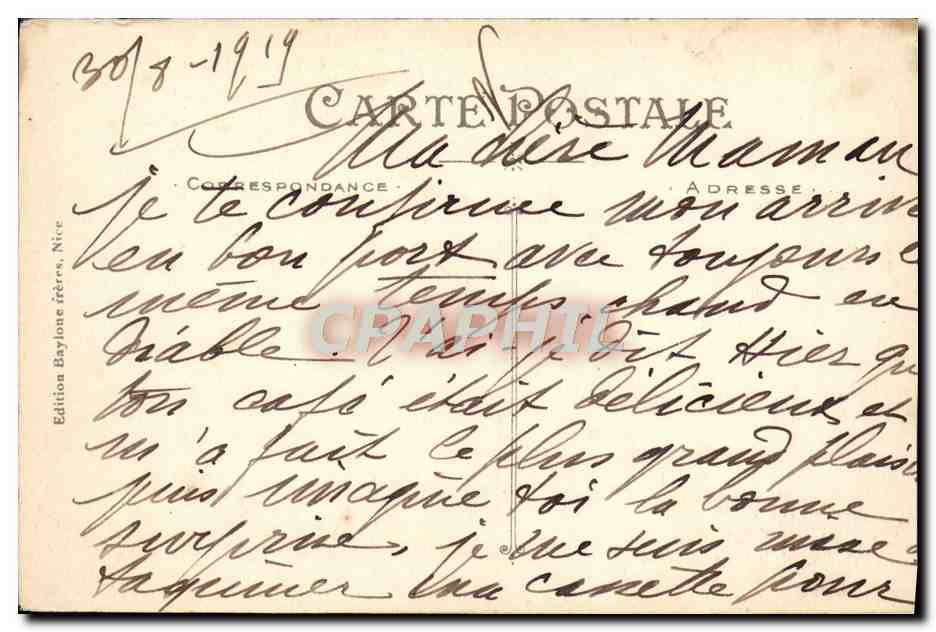 30/8-1919
CARTE POSTALE
Ma chère Maman
CORRESPONDANCE
ADRESSE
je te confirme mon arriv
en bon port avec toujours l
même temps chaud en
diable. T'ai-je dit Hier qu
ton café était délicieux et
m'a fait le plus grand plaisi
puis imagine toi la bonne
surprise, je me suis mise a
taquiner ma cassette pour
Edition Baylone frères, Nice
CPAPHIL